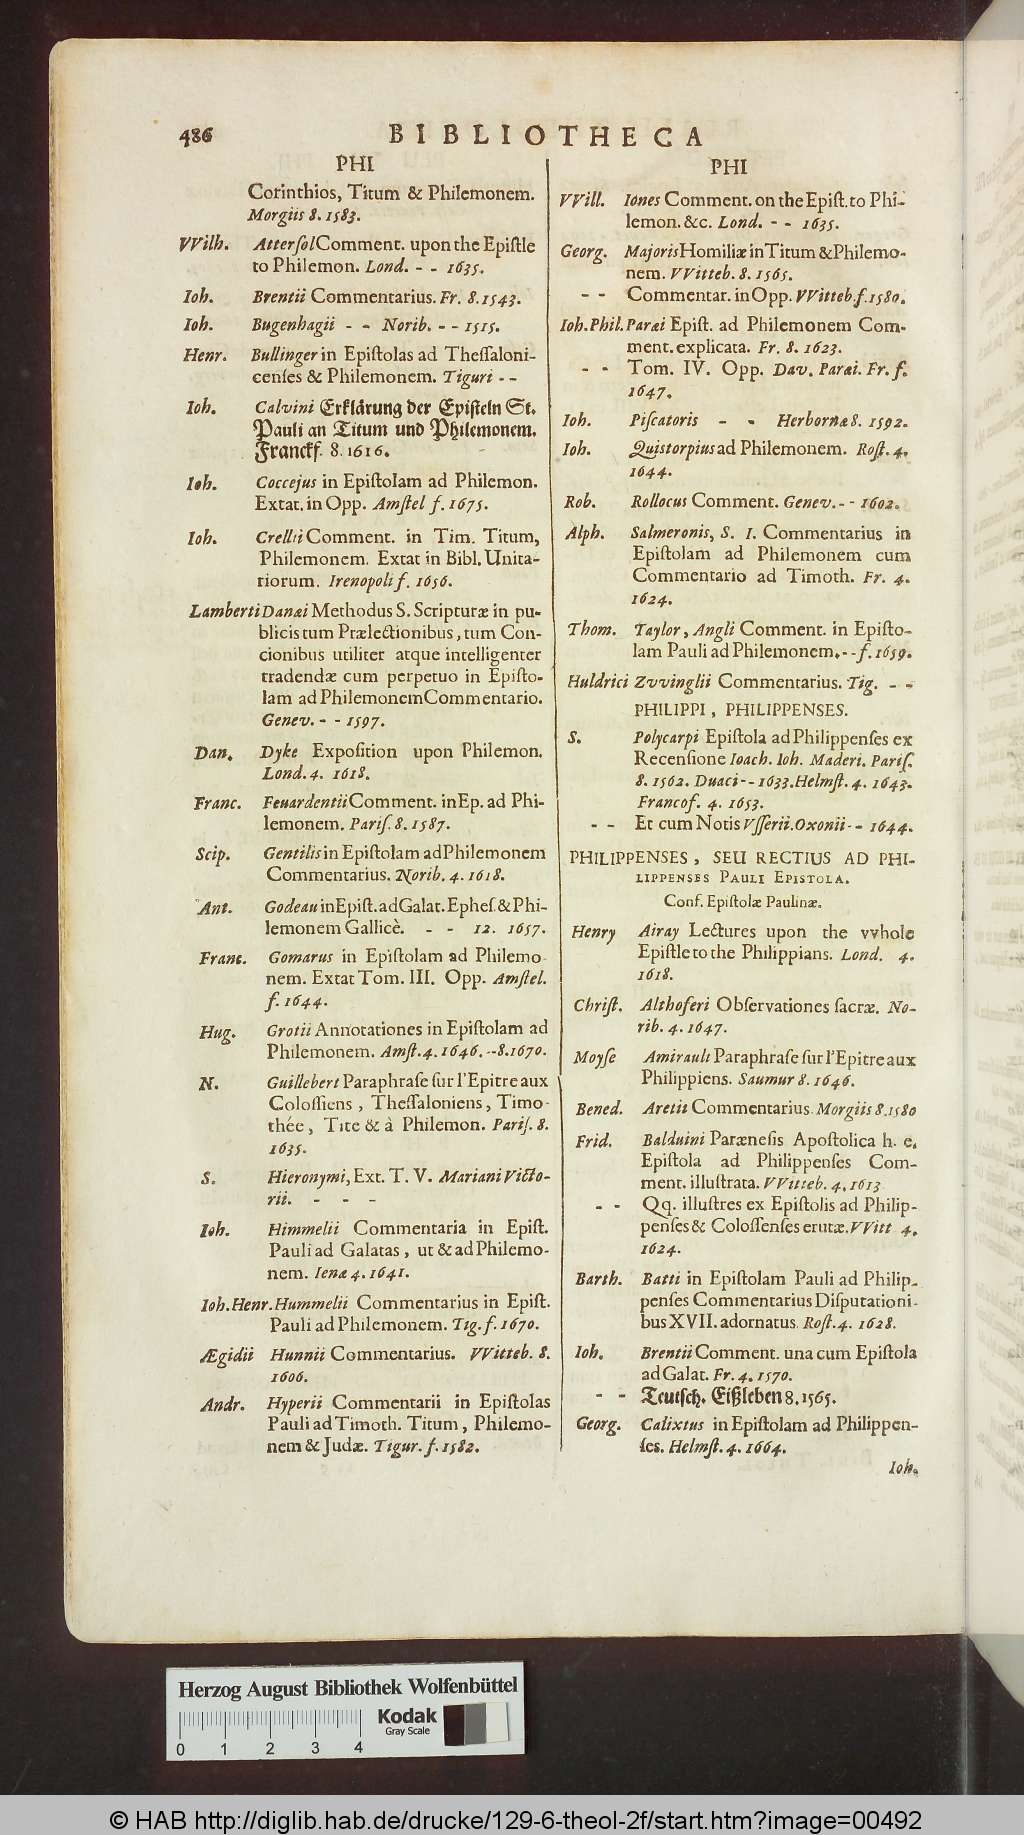 486 BIBLIOTHECA
PHI
Corinthios, Titum & Philemonem.
Morgiis 8. 1583.
VVilh. Attersol Comment. upon the Epiſtle
to Philemon. Lond. - - 1635.
Ioh. Brentii Commentarius. Fr. 8. 1543.
Ioh. Bugenhagii - - Norib. - - 1515.
Henr. Bullinger in Epiſtolas ad Theſſaloni-
cenſes & Philemonem. Tiguri - -
Ioh. Calvini Erklärung der Epiſteln St.
Pauli an Titum und Philemonem.
Franckf. 8. 1616.
Ioh. Coccejus in Epiſtolam ad Philemon.
Extat. in Opp. Amſtel f. 1675.
Ioh. Crellii Comment. in Tim. Titum,
Philemonem. Extat in Bibl. Unita-
riorum. Irenopoli f. 1656.
Lamberti Danæi Methodus S. Scripturæ in pu-
blicis tum Prælectionibus, tum Con-
cionibus utiliter atque intelligenter
tradendæ cum perpetuo in Epiſto-
lam ad Philemonem Commentario.
Genev. - - 1597.
Dan. Dyke Expoſition upon Philemon.
Lond. 4. 1618.
Franc. Feuardentii Comment. in Ep. ad Phi-
lemonem. Pariſ. 8. 1587.
Scip. Gentilis in Epiſtolam ad Philemonem
Commentarius. Norib. 4. 1618.
Ant. Godeau in Epiſt. ad Galat. Epheſ. & Phi-
lemonem Gallicè. - - 12. 1657.
Franc. Gomarus in Epiſtolam ad Philemo-
nem. Extat Tom. III. Opp. Amſtel.
f. 1644.
Hug. Grotii Annotationes in Epiſtolam ad
Philemonem. Amſt. 4. 1646. -- 8. 1670.
N. Guillebert Paraphraſe ſur l'Epitre aux
Coloſſiens, Theſſaloniens, Timo-
thée, Tite & à Philemon. Pariſ. 8.
1635.
S. Hieronymi, Ext. T. V. Mariani Victo-
rii. - - -
Ioh. Himmelii Commentaria in Epiſt.
Pauli ad Galatas, ut & ad Philemo-
nem. Ienæ 4. 1641.
Ioh. Henr. Hummelii Commentarius in Epiſt.
Pauli ad Philemonem. Tig. f. 1670.
Ægidii Hunnii Commentarius. VVitteb. 8.
1606.
Andr. Hyperii Commentarii in Epiſtolas
Pauli ad Timoth. Titum, Philemo-
nem & Judæ. Tigur. f. 1582.
PHI
VVill. Iones Comment. on the Epiſt. to Phi-
lemon. &c. Lond. - - 1635.
Georg. Majoris Homiliæ in Titum & Philemo-
nem. VVitteb. 8. 1565.
- - Commentar. in Opp. VVitteb. f. 1580.
Ioh. Phil. Paræi Epiſt. ad Philemonem Com-
ment. explicata. Fr. 8. 1623.
- - Tom. IV. Opp. Dav. Paræi. Fr. f.
1647.
Ioh. Piſcatoris - - Herbornæ 8. 1592.
Ioh. Quistorpius ad Philemonem. Roſt. 4.
1644.
Rob. Rollocus Comment. Genev. - - 1602.
Alph. Salmeronis, S. I. Commentarius in
Epiſtolam ad Philemonem cum
Commentario ad Timoth. Fr. 4.
1624.
Thom. Taylor, Angli Comment. in Epiſto-
lam Pauli ad Philemonem. - - f. 1659.
Huldrici Zvvinglii Commentarius. Tig. - -
PHILIPPI, PHILIPPENSES.
S. Polycarpi Epiſtola ad Philippenſes ex
Recenſione Ioach. Ioh. Maderi. Pariſ.
8. 1562. Duaci - - 1633. Helmſt. 4. 1643.
Francof. 4. 1653.
- - Et cum Notis Vſſerii. Oxonii - - 1644.
PHILIPPENSES, SEU RECTIUS AD PHI-
LIPPENSES PAULI EPISTOLA.
Conf. Epiſtolæ Paulinæ.
Henry Airay Lectures upon the vvhole
Epiſtle to the Philippians. Lond. 4.
1618.
Chriſt. Althoferi Obſervationes ſacræ. No-
rib. 4. 1647.
Moyſe Amirault Paraphraſe ſur l'Epitre aux
Philippiens. Saumur 8. 1646.
Bened. Aretii Commentarius. Morgiis 8. 1580
Frid. Balduini Parænesis Apoſtolica h. e.
Epiſtola ad Philippenſes Com-
ment. illuſtrata. VVitteb. 4. 1613
- - Qq. illuſtres ex Epiſtolis ad Philip-
penſes & Coloſſenſes erutæ. VVitt 4.
1624.
Barth. Batti in Epiſtolam Pauli ad Philip-
penſes Commentarius Diſputationi-
bus XVII. adornatus. Roſt. 4. 1628.
Ioh. Brentii Comment. una cum Epiſtola
ad Galat. Fr. 4. 1570.
- - Teutſch. Eißleben 8. 1565.
Georg. Calixtus in Epiſtolam ad Philippen-
ſes. Helmſt. 4. 1664.
Ioh.
Herzog August Bibliothek Wolfenbüttel
Kodak
Gray Scale
0 1 2 3 4
© HAB http://diglib.hab.de/drucke/129-6-theol-2f/start.htm?image=00492